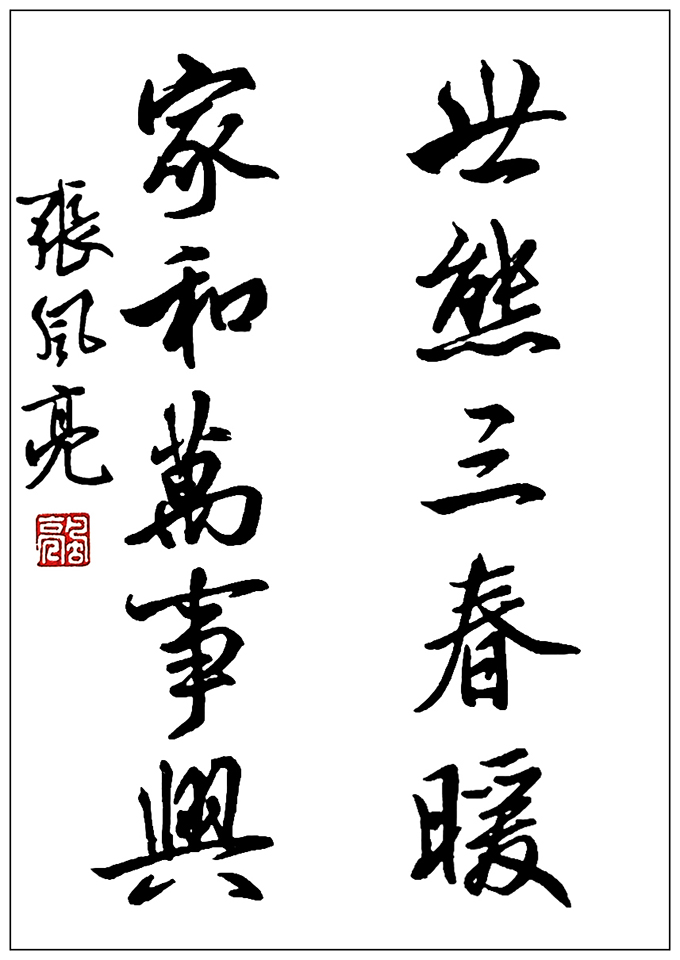 世熊三春暖
家和萬事興
張風亮